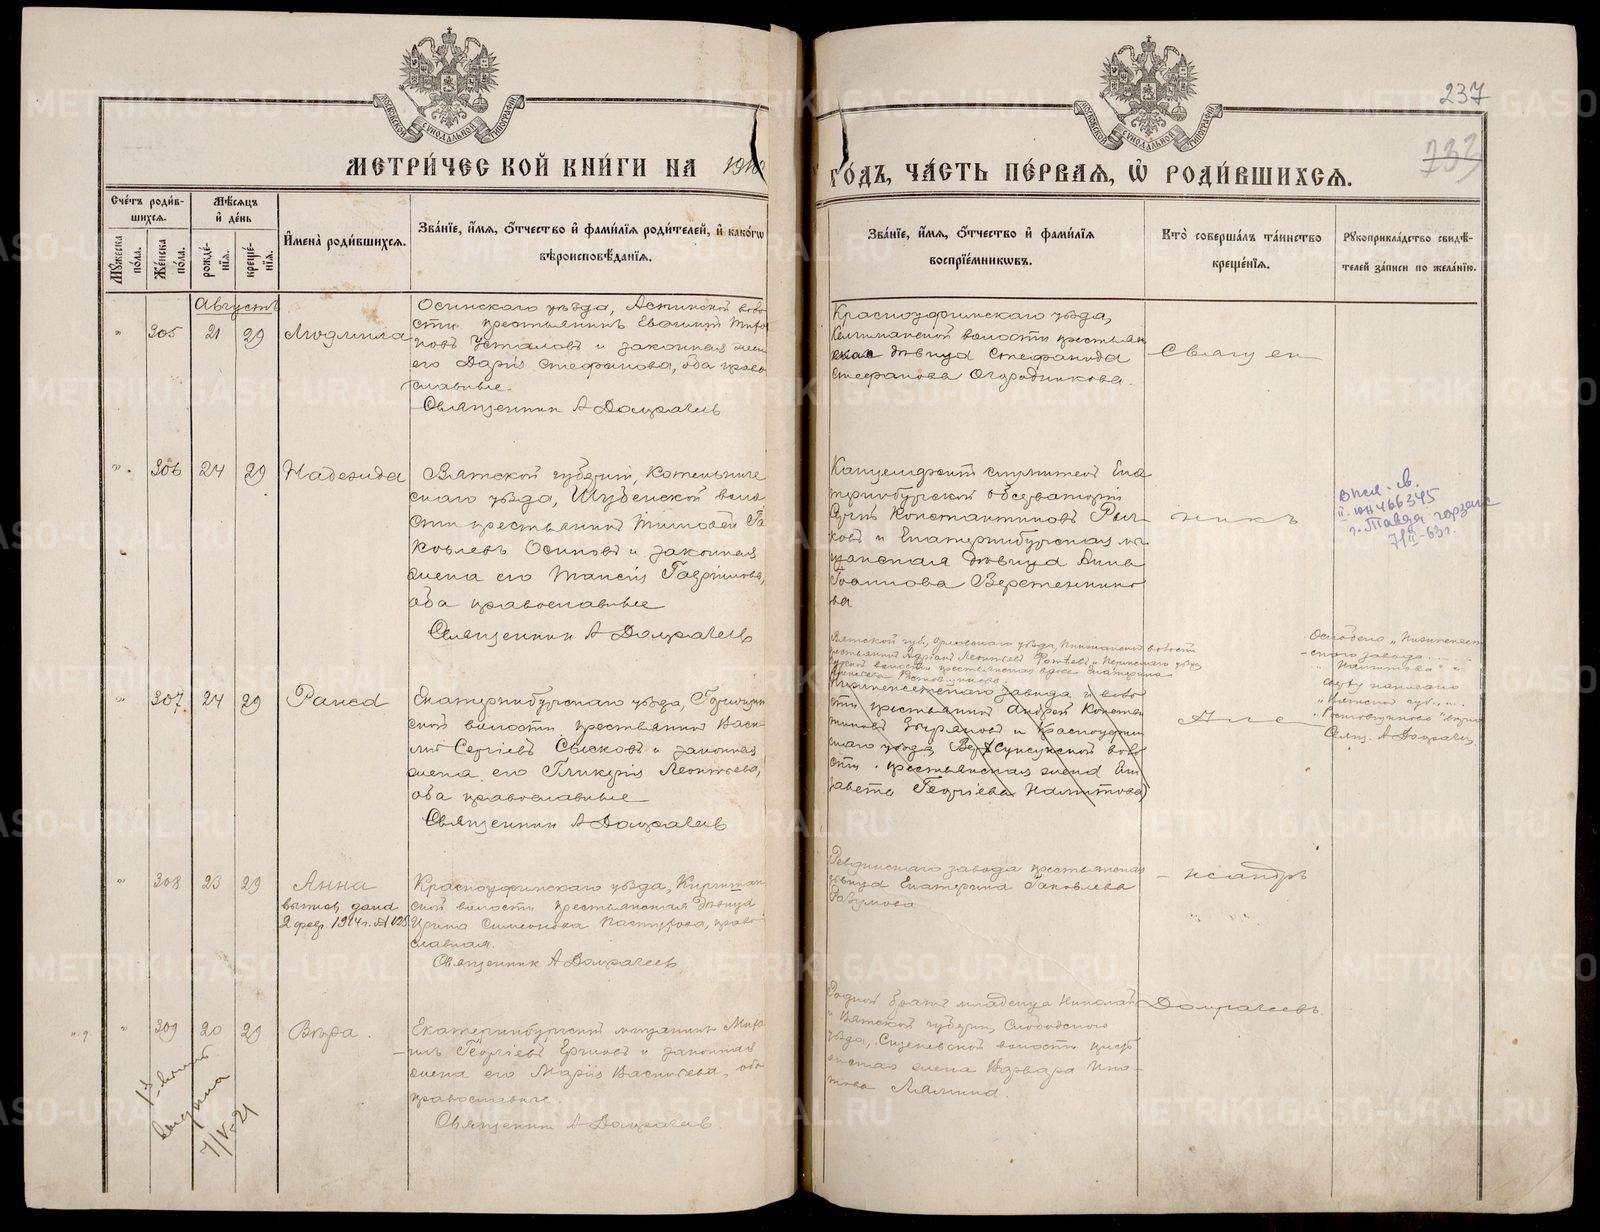 237
232
МОСКОВСКОЙ СѴНОДАЛЬНОЙ ТИПОГРАФІИ
МОСКОВСКОЙ СѴНОДАЛЬНОЙ ТИПОГРАФІИ
МЕТРИ́ЧЕСКОЙ КНИ́ГИ НА 1910
ГО́ДЪ, ЧА́СТЬ ПЕ́РВАЯ, Ѽ РОДИ́ВШИХСЯ.
Сче́тъ роди́в-
шихся.
Мѣ́сяцъ
и҆ де́нь
Мꙋ́жеска по́ла.
Же́нска по́ла.
рожде́-
нїѧ.
креще́-
нїѧ.
И҆мена̀ роди́вшихсѧ.
Зва́нїе, и҆́мѧ, ѻ҆́тчество и҆ фами́лїѧ роди́телей, и҆ како́гѡ
вѣроисповѣ́данїѧ.
Зва́нїе, и҆́мѧ, ѻ҆́тчество и҆ фами́лїѧ
воспрїе́мниковъ.
Кто̀ соверша́лъ та́инство
креще́нїѧ.
Рꙋкоприкла́дство свидѣ́-
телей за́писи по жела́нїю.
Августъ
" 305 21 29 Людмила
Осинскаго уѣзда, Аспинской воло
сти крестьянинъ Евфимій Миро
новъ Усталовъ и законная жена
его Дарія Стефанова, оба право
славные.
Священник А Домрачевъ
Красноуфимскаго уѣзда,
волости крестьян
ская дѣвица Стефанида
Стефанова Огородникова.
Священ
" 306 24 29 Надежда
Вятской губерніи, Котельниче
скаго уѣзда, волости
крестьянинъ Тимофей Іа
ковлевъ Осиповъ и законная
жена его Таисія Гавріилова,
оба православные
Священник А Домрачевъ
Канцелярскій служитель Ека
теринбургской обсерваторіи
Сергѣй Константиновъ
и Екатеринбургская мѣ
щанская дѣвица Анна
Іоаннова Веретеннико
ва
никъ
вып. св.
II-ЮН 466345
г. Тавда горзагс
7/II-63г.
" 307 24 29 Раиса
Екатеринбургскаго уѣзда,
ской волости крестьянинъ Васи
лій Сергіевъ Сысковъ и законная
жена его Гликерія Леонтьева,
оба православные
Священник А Домрачевъ
Вятской губ., Орловскаго уѣзда, волости
крестьянинъ Адріанъ Леонтьевъ
волости крестьянская вдова Екатерина
завода и воло
сти крестьянинъ Андрей Констан
тиновъ и Красноуфим
скаго уѣзда волос
сти крестьянская жена Ели
завета Георгіева Налимова
Але
скаго завода
"Налимова"
написано
"Вятской губ., ...
Свящ. А Домрачевъ
" 308 23 29 Анна
выпись дана
2 февр. 1914г. № 125
Красноуфимскаго уѣзда, Киргишан
ской волости крестьянская дѣвица
Ирина Симеонова Пастухова, право
славная.
Священник А Домрачевъ
Ревдинскаго завода крестьянская
дѣвица Екатерина Іаковлева
Разумова
ксандръ
" 309 20 29 Вѣра.
Екатеринбургскій мѣщанинъ Миха
илъ Георгіевъ Ершовъ и законная
жена его Марія Васильева, оба
православные.
Священник А Домрачевъ.
Родной братъ младенца Николай
и Вятской губерніи, Слободского
уѣзда, волости крест
янская жена Варвара Ипа
това Лялина.
Домрачевъ
выдана
7/V-21
METRIKI.GASO-URAL.RU